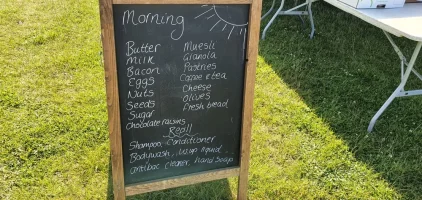 Morning
Butter
Milk
Bacon
Eggs
Nuts
Seeds
Sugar
Chocolate raisins
Muesli
Granola
Pastries
Coffee & tea
Cheese
Olives
Fresh bread
Refill
Shampoo, Conditioner
Bodywash, liquid
antibac cleaner, hand soap